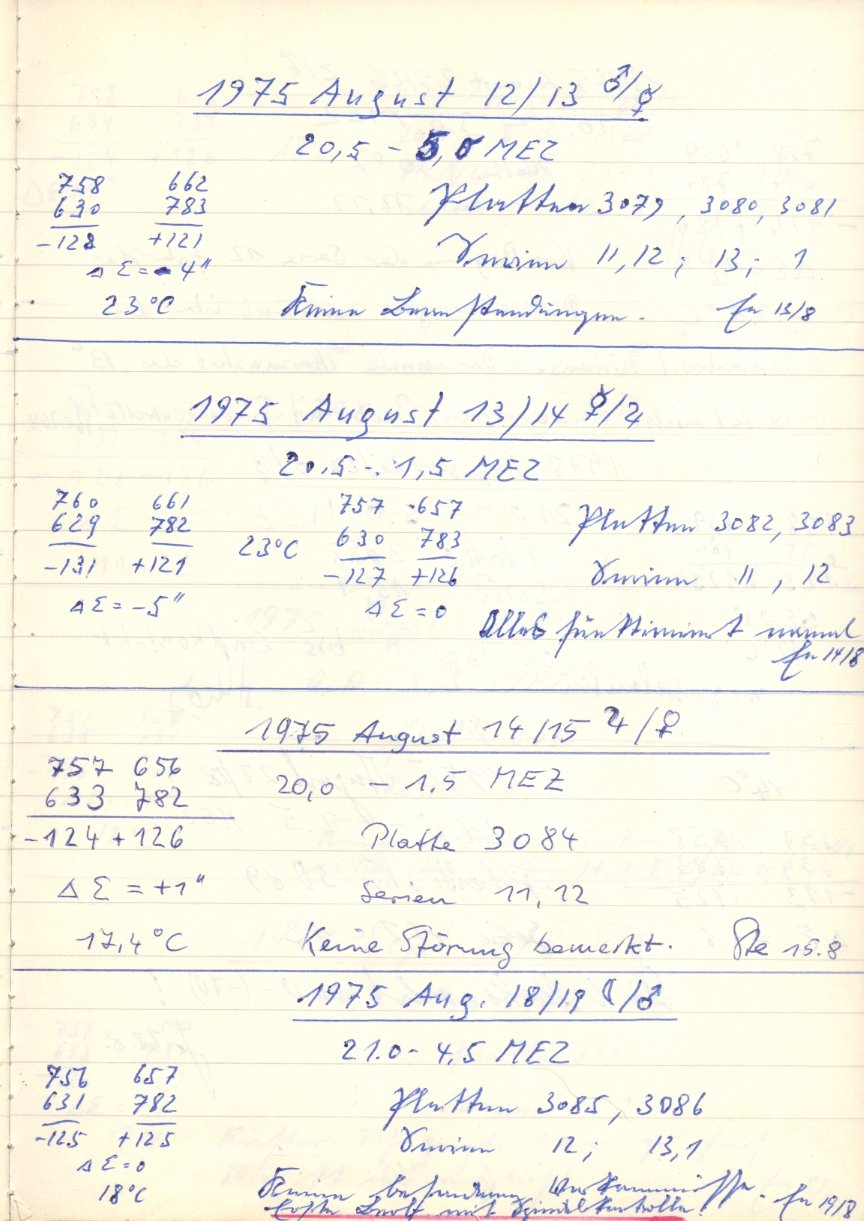 1975 August 12/13 ♂/☿
20,5 – 5,0 MEZ
758 662
630 783
-128 +121
Δ Σ = -4"
23°C
Platten 3079, 3080, 3081
Serien 11, 12; 13; 1
Keine Beanstandungen. 13/8
1975 August 13/14 ☿/♃
20.5 – 1,5 MEZ
760 661
629 782
-131 +121
Δ Σ = -5"
23°C
757 657
630 783
-127 +126
Δ Σ = 0
Platten 3082, 3083
Serien 11, 12
Alles funktioniert normal
14/8
1975 August 14/15 ♃/♀
757 656
633 782
-124 +126
Δ Σ = +1"
17,4°C
20,0 – 1.5 MEZ
Platte 3084
Serien 11, 12
Keine Störung bemerkt. Ste 15.8
1975 Aug. 18/19 ☾/♂
21.0 - 4,5 MEZ
756 657
631 782
-125 +125
Δ Σ = 0
18°C
Platten 3085, 3086
Serien 12; 13,1
Keine besonderen Vorkommnisse. 19/8
mit